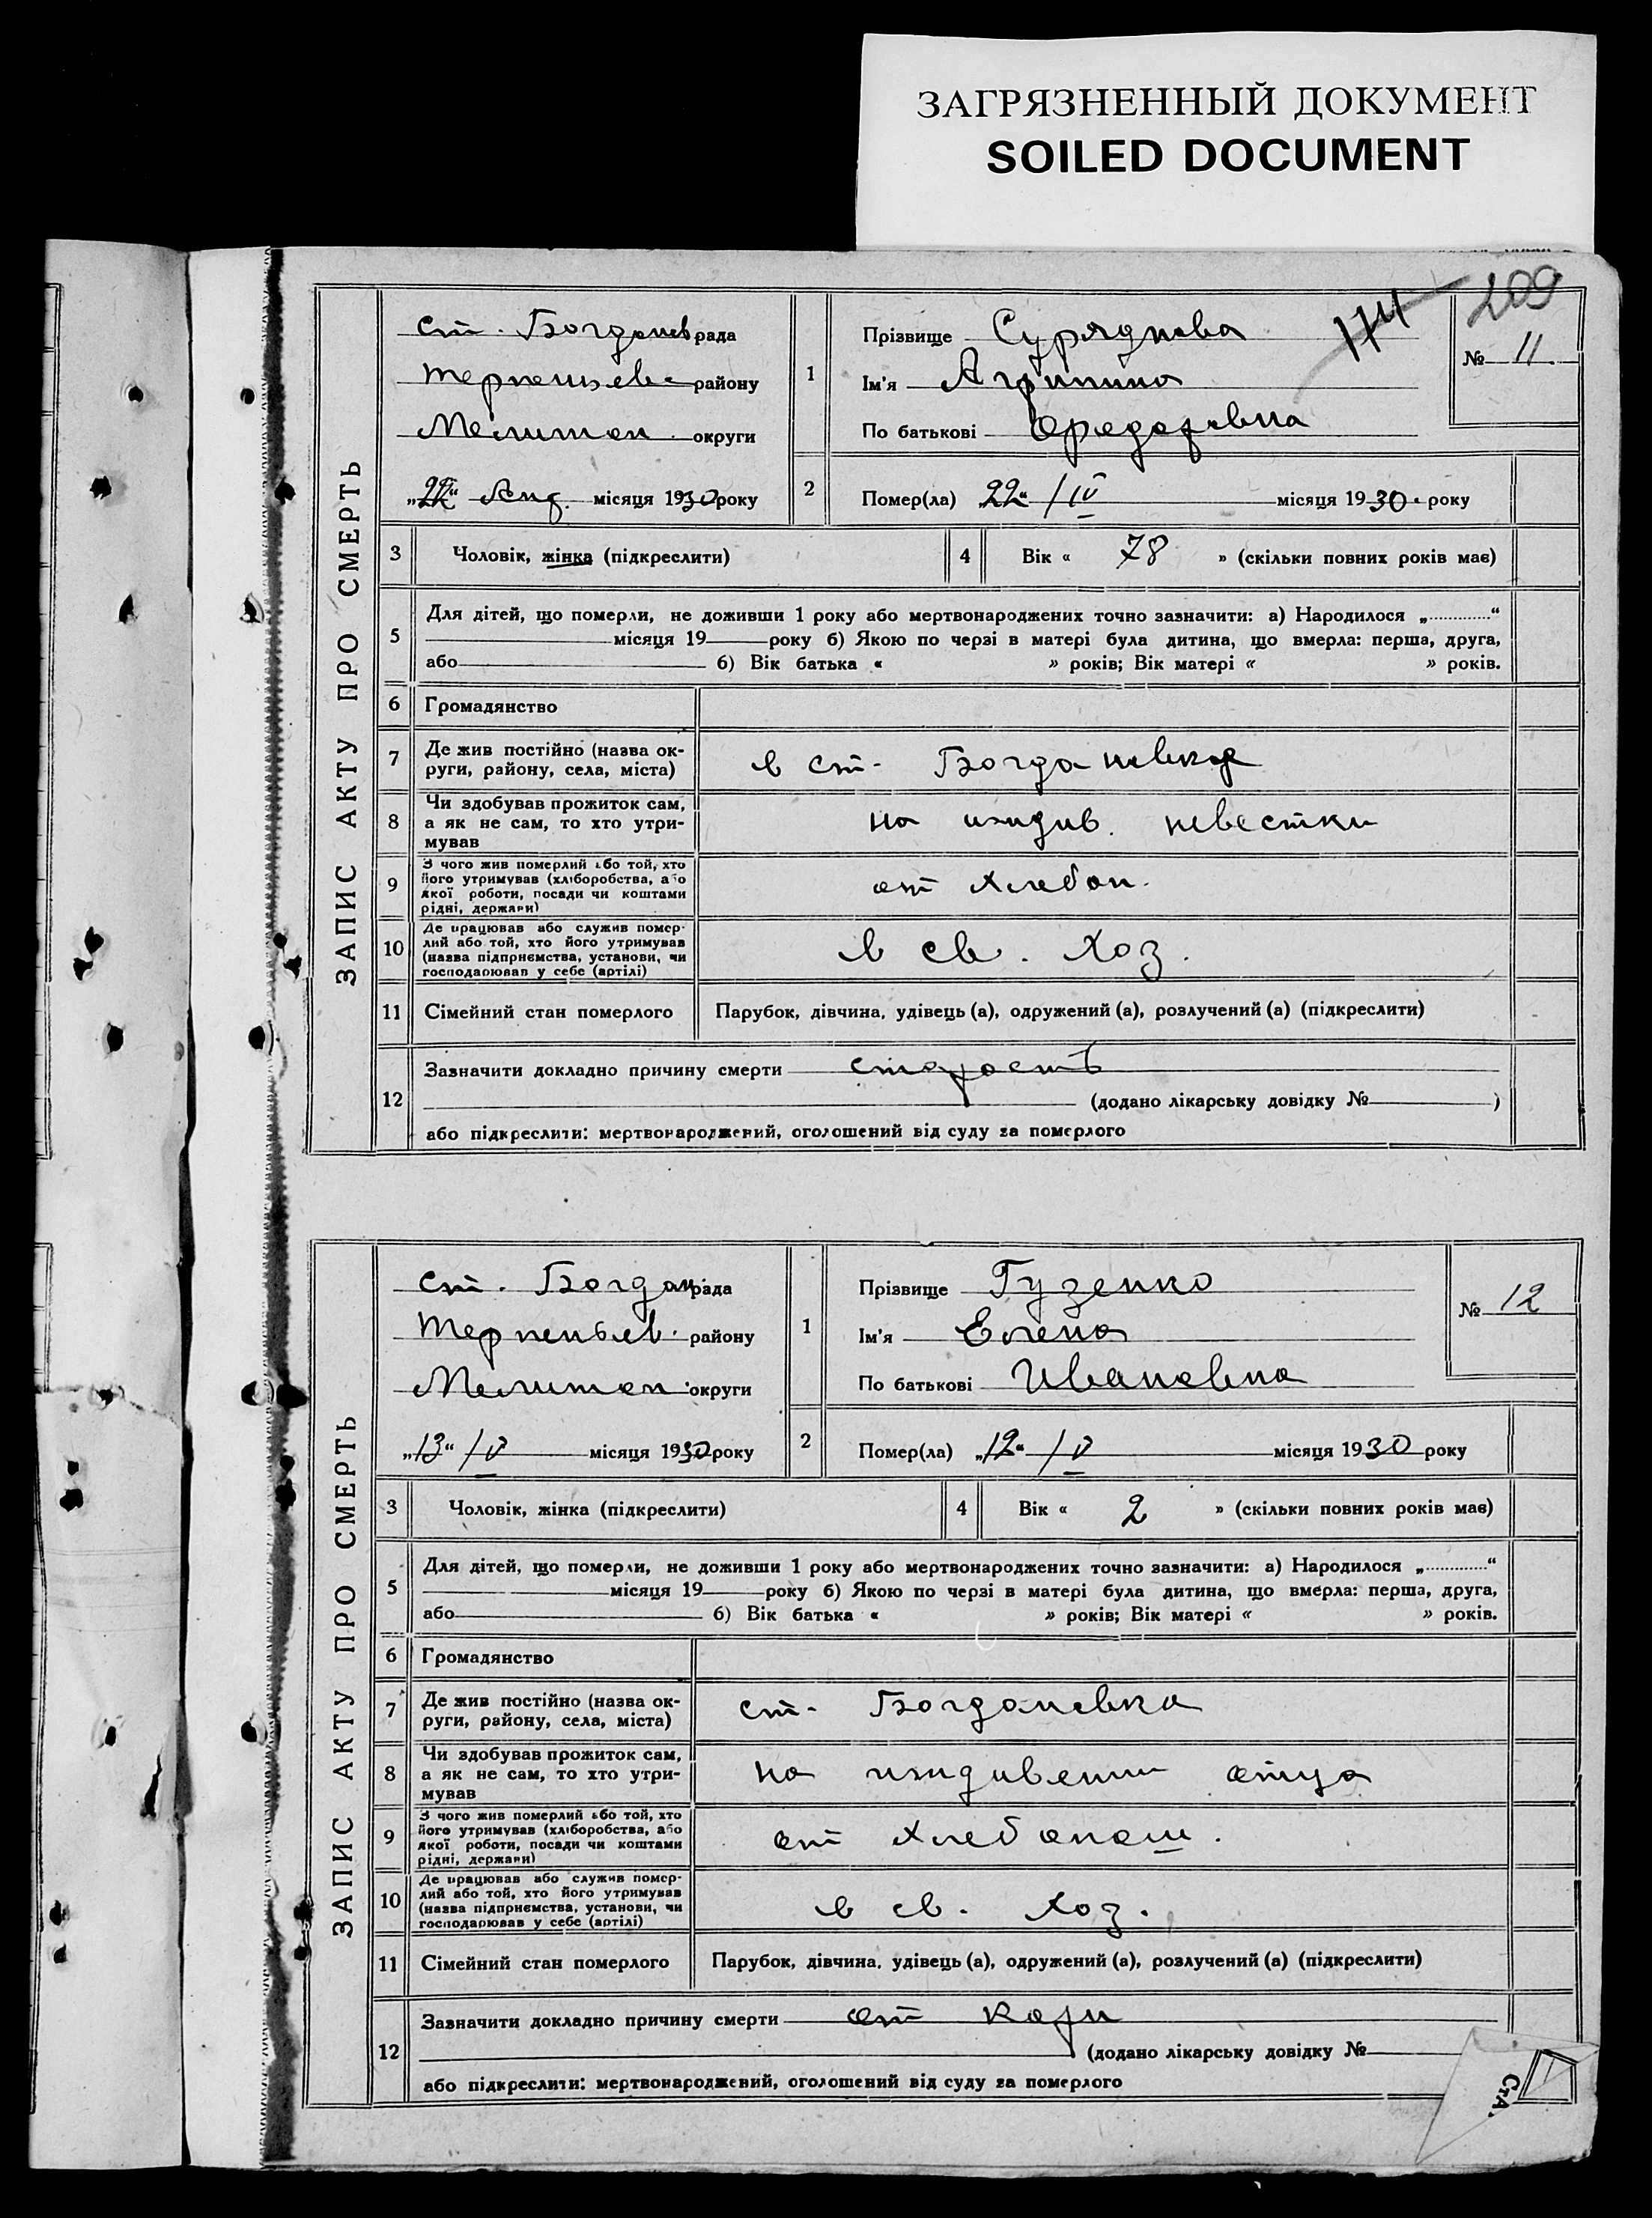 ЗАГРЯЗНЕННЫЙ ДОКУМЕНТ
SOILED DOCUMENT
209
174
ЗАПИС АКТУ ПРО СМЕРТЬ
ст. Богданов рада
Терпеньев. району
Мелитоп. округи
місяця 1930 року
1
Прізвище
Ім'я Агрипина
По батькові
№ 11.
2
Помер(ла) „22“ /IV місяця 1930. року
3 Чоловік, жінка (підкреслити)
4 Вік « 78 » (скільки повних років має)
5 Для дітей, що померли, не доживши 1 року або мертвонароджених точно зазначити: а) Народилося „............“
місяця 19 року б) Якою по черзі в матері була дитина, що вмерла: перша, друга,
або б) Вік батька « » років; Вік матері « » років.
6 Громадянство
7 Де жив постійно (назва ок-
руги, району, села, міста)
в ст. Богдановке
8 Чи здобував прожиток сам,
а як не сам, то хто утри-
мував
на иждив. невестки
9 З чого жив померлий або той, хто
його утримував (хліборобства, або
якої роботи, посади чи коштами
рідні, держави)
от хлебоп.
10 Де працював або служив помер-
лий або той, хто його утримував
(назва підприємства, установи, чи
господарював у себе (артілі)
в св. хоз.
11 Сімейний стан померлого
Парубок, дівчина, удівець (а), одружений (а), розлучений (а) (підкреслити)
12 Зазначити докладно причину смерти старость
(додано лікарську довідку № )
або підкреслити: мертвонароджений, оголошений від суду за померлого
ЗАПИС АКТУ ПРО СМЕРТЬ
ст. Богдан рада
Терпеньев. району
Мелитоп. округи
„13“ /V місяця 1930 року
1
Прізвище Гузенко
Ім'я Елена
По батькові Ивановна
№ 12
2
Помер(ла) „12“ /V місяця 1930 року
3 Чоловік, жінка (підкреслити)
4 Вік « 2 » (скільки повних років має)
5 Для дітей, що померли, не доживши 1 року або мертвонароджених точно зазначити: а) Народилося „............“
місяця 19 року б) Якою по черзі в матері була дитина, що вмерла: перша, друга,
або б) Вік батька « » років; Вік матері « » років.
6 Громадянство
7 Де жив постійно (назва ок-
руги, району, села, міста)
ст. Богдановка
8 Чи здобував прожиток сам,
а як не сам, то хто утри-
мував
на иждивении отца
9 З чого жив померлий або той, хто
його утримував (хліборобства, або
якої роботи, посади чи коштами
рідні, держави)
от хлебопаш.
10 Де працював або служив помер-
лий або той, хто його утримував
(назва підприємства, установи, чи
господарював у себе (артілі)
в св. хоз.
11 Сімейний стан померлого
Парубок, дівчина, удівець (а), одружений (а), розлучений (а) (підкреслити)
12 Зазначити докладно причину смерти от кори
(додано лікарську довідку №
або підкреслити: мертвонароджений, оголошений від суду за померлого